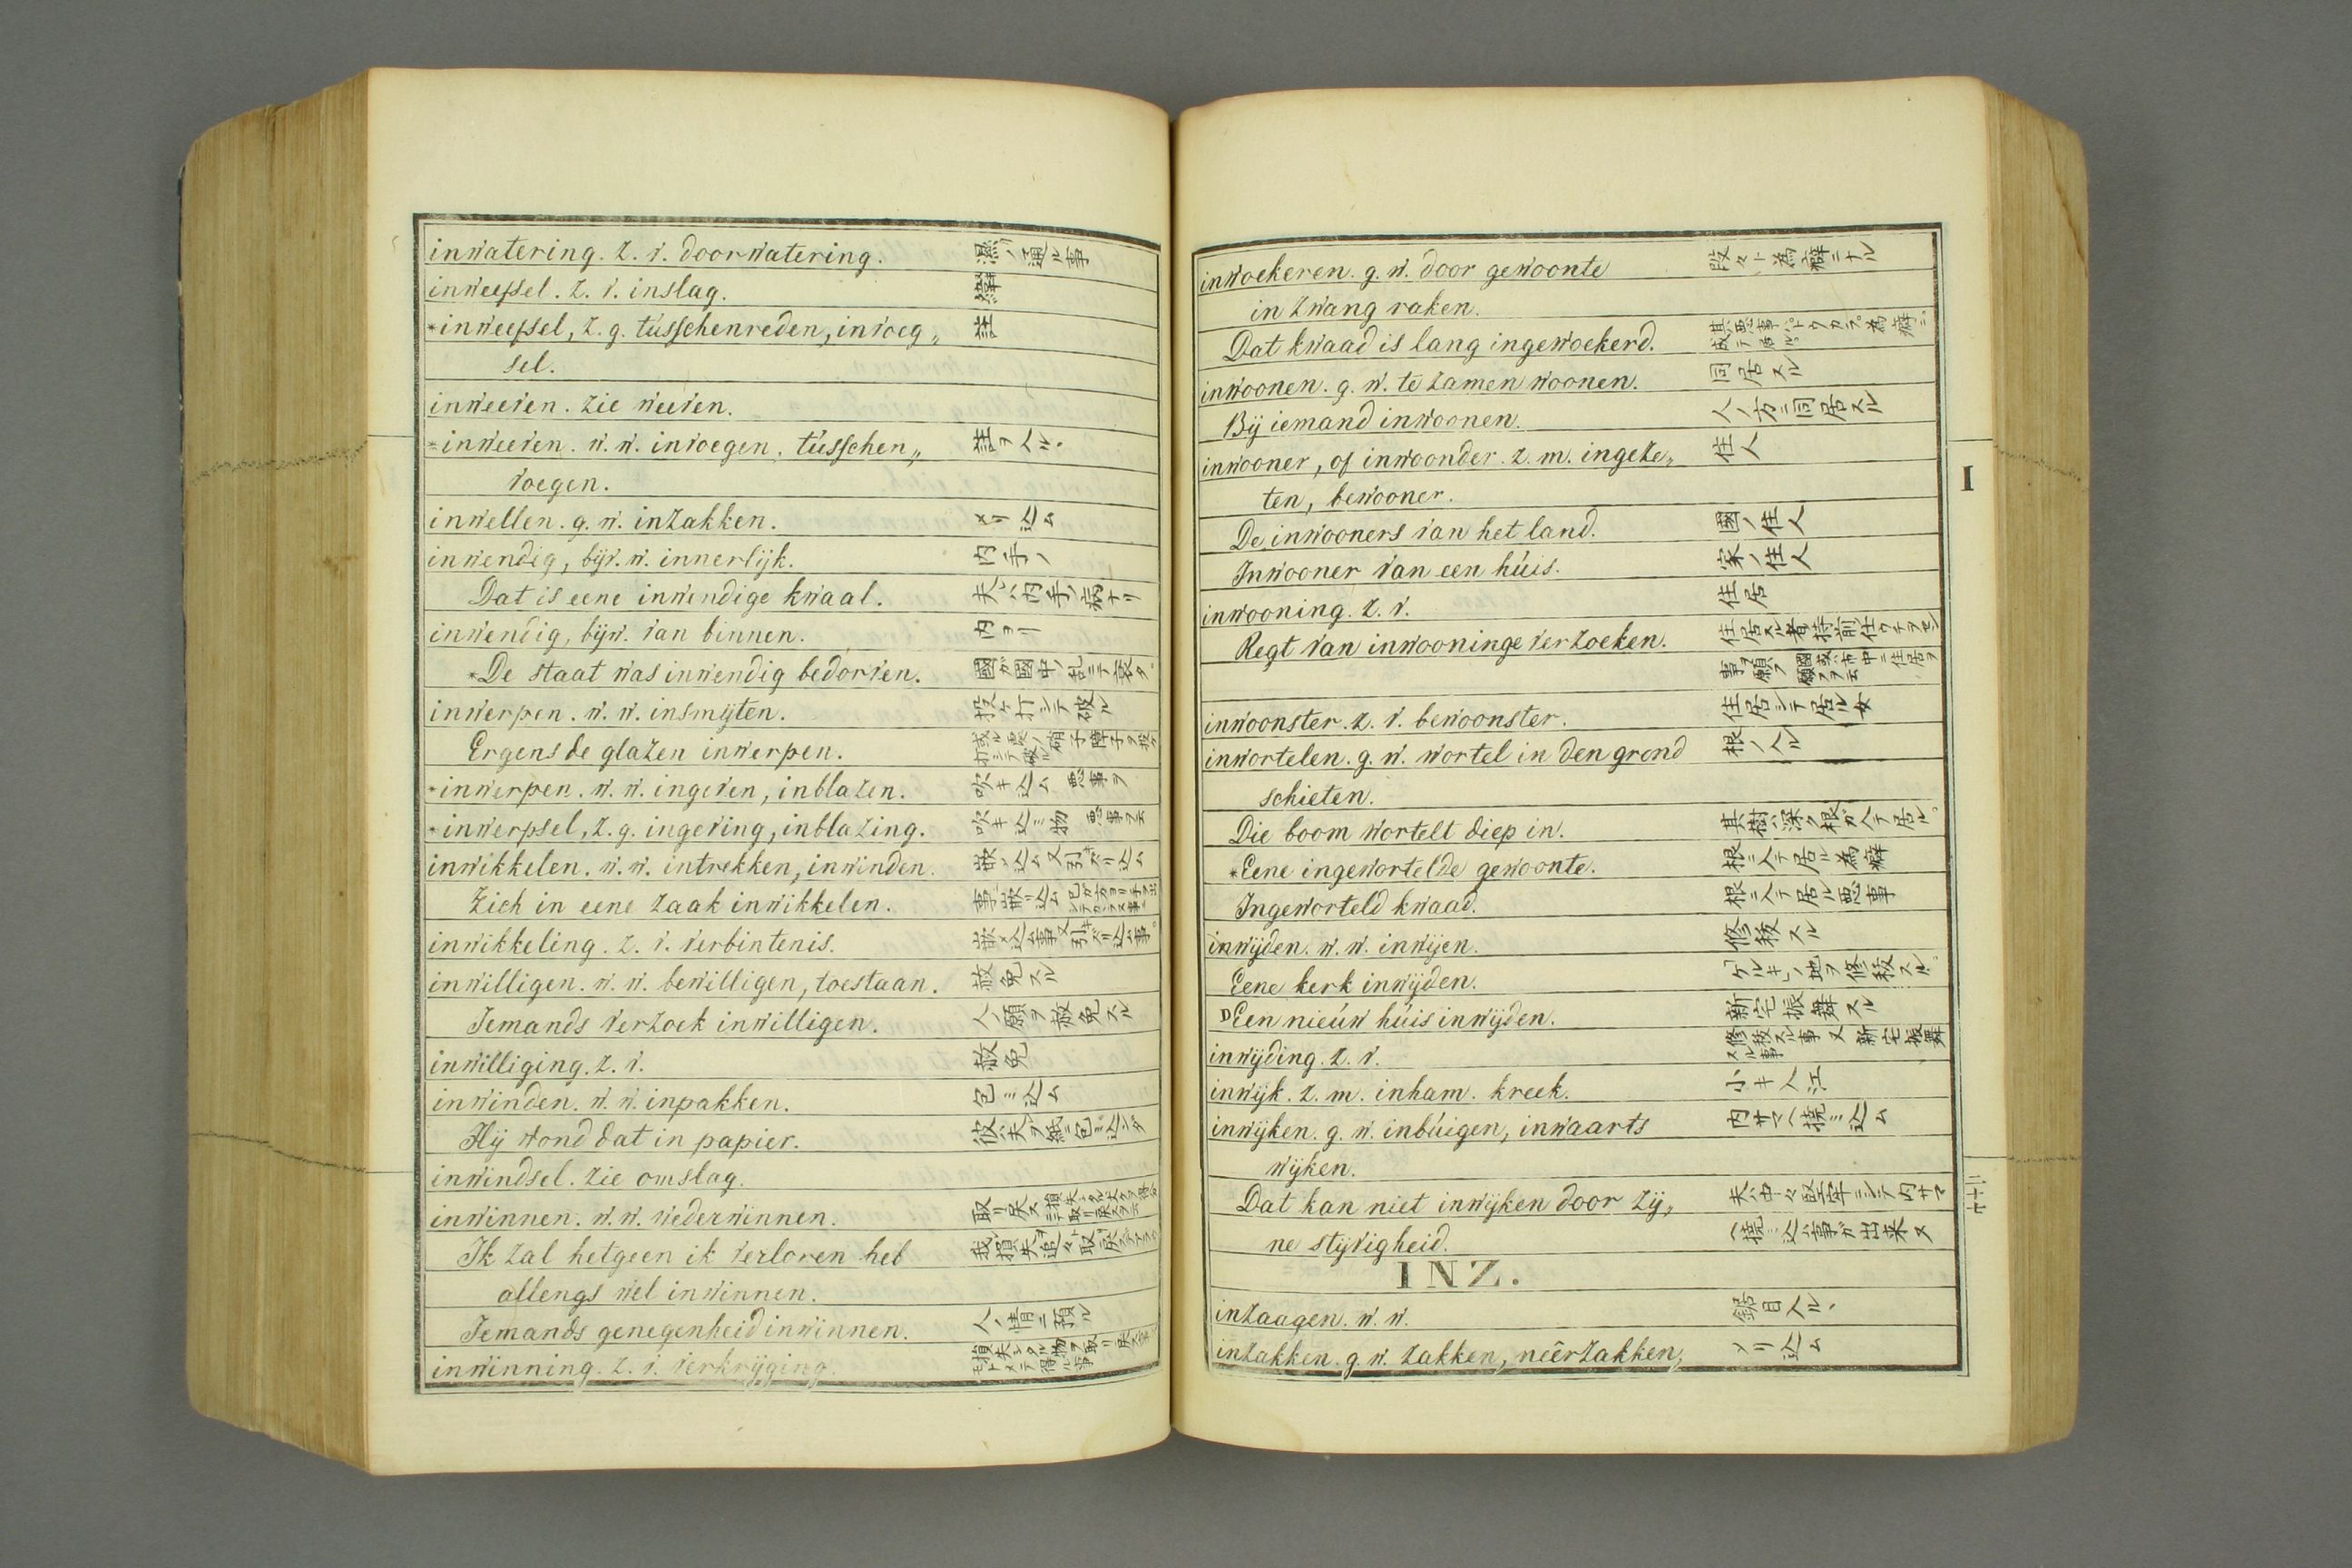 inwatering. z. v. doorwatering. 濕ノ通ル事
inweefsel. z. v. inslag. 緯
*inweefsel, z. g. tússchenreden, invoeg„ 註
sel.
inweeven. zie weeven.
*inweeven. w. w. invoegen. tússchen„ 註ヲ入ル.
voegen.
inwellen. g. w. inzakken. メリ込ム
inwendig, bijv. w. innerlijk. 内手ノ
Dat is eene inwendige kwaal. 夫ハ内手ノ病ナリ
inwendig, bijw. van binnen. 内ヨリ
*De staat was inwendig bedorven. 國ガ國中ノ乱ニテ衰タ
inwerpen. w. w. insmijten. 投ケ打シテ破ル
Ergens de glazen inwerpen. 或ル處ノ硝子障子ヲ投ケ打シテ破ル
*inwerpen. w. w. ingeven, inblazen. 吹キ込ム 悪事ヲ
*inwerpsel, z. g. ingeving, inblazing. 吹キ込ミ物 悪事ヲ云
inwikkelen. w. w. intrekken, inwinden. 嵌メ込ム又引キズリ込ム
Zich in eene zaak inwikkelen. 事ニ嵌リ込ム
inwikkeling. z. v. verbintenis. 嵌メ込ム事又引キズリ込ム事
inwilligen. w. w. bewilligen, toestaan. 赦免スル
Iemands verzoek inwilligen. 人ノ願ヲ赦免スル
inwilliging. z. v. 赦免
inwinden. w. w. inpakken. 包ミ込ム
Hij wond dat in papier. 彼ハ夫ヲ紙ニ包ミ込ンタ
inwindsel. zie omslag.
inwinnen. w. w. wederwinnen. 取リ戻ス
Ik zal hetgeen ik verloren heb 我ハ損失ヲ追々取リ戻スデアラフ
allengs wel inwinnen.
Iemands genegenheid inwinnen. 人ノ情ニ預ル
inwinning. z. v. verkrijging. 損失シタル物ヲ取リ戻ス事
inwoekeren. g. w. door gewoonte 段々ト為癖ニナル
in zwang raken.
Dat kwaad is lang ingewoekerd. 其悪事ハトウカラ為癖ニ成テ居ル
inwoonen. g. w. te zamen woonen. 同居スル
Bij iemand inwoonen. 人ノ方ニ同居スル
inwooner, of inwoonder. z. m. ingeze„ 住人
ten, bewooner.
De inwooners van het land. 國ノ住人
Inwooner van een húis. 家ノ住人
inwooning. z. v. 住居
Regt van inwooninge verzoeken. 住居スル者ノ持前
事ヲ願フ
inwoonster. z. v. bewoonster. 住居シテ居ル女
inwortelen. g. w. wortel in den grond 根ノ入ル
schieten.
Die boom wortelt diep in. 其樹ハ深ク根ガ入テ居ル
*Eene ingewortelde gewoonte. 根ニ入テ居ル為癖
Ingeworteld kwaad. 根ニ入テ居ル悪事
inwijden. w. w. inwijen. 修秡スル
Eene kerk inwijden. 「ケルキ」ノ地ヲ修秡スル
DEen nieúw húis inwijden. 新宅振舞スル
inwijding. z. v. 修秡スル事又新宅振舞スル事
inwijk. z. m. inham. kreek. 小キ入江
inwijken. g. w. inbúigen, inwaarts 内サマヘ撓ミ込ム
wijken.
Dat kan niet inwijken door zij„ 夫ハ中々堅牢ニシテ内サマ
ne stijvigheid. ヘ撓ミ込ム事ガ出来ヌ
INZ.
inzaagen. w. w. 鋸目入ル
inzakken. g. w. zakken, neêrzakken, メリ込ム
I